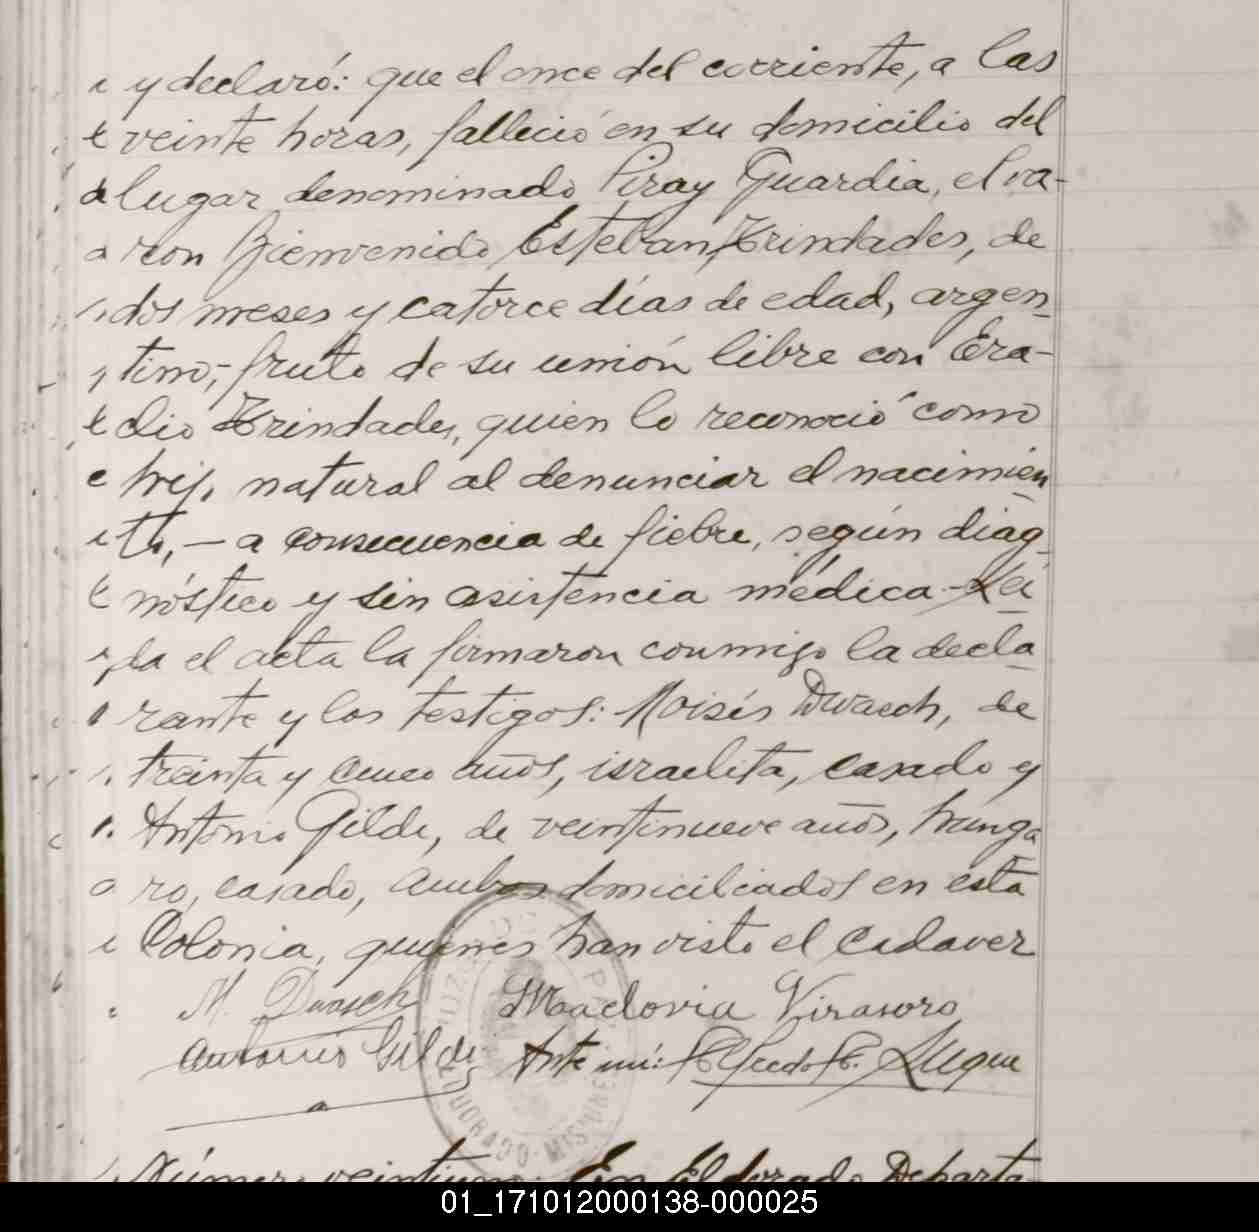 y declaró: que el once del corriente, a las
veinte horas, falleció en su domicilio del
lugar denominado Piray Guardia, el va-
ron Bienvenido Esteban Trindades, de
dos meses y catorce días de edad, argen
tino,- fruto de su unión libre con Era-
dio Trindades, quien lo reconoció como
hijo natural al denunciar el nacimien
to,- a consecuencia de fiebre, según diag
nóstico y sin asistencia médica - Leí
da el acta la firmaron conmigo la decla
rante y los testigos: Moisés Dwasch, de
treinta y cinco años, israelita, casado y
Antonio Gilde, de veintinueve años, hunga
ro, casado, ambos domiciliados en esta
Colonia, quienes han visto el cadaver
M. Dwasch Maclovia Virasoro
Antonio Gilde Ante mí: Luque
JUZGADO DE PAZ
ELDORADO-MISIONES
Número veintiuno. En Eldorado Departa-
01_171012000138-000025